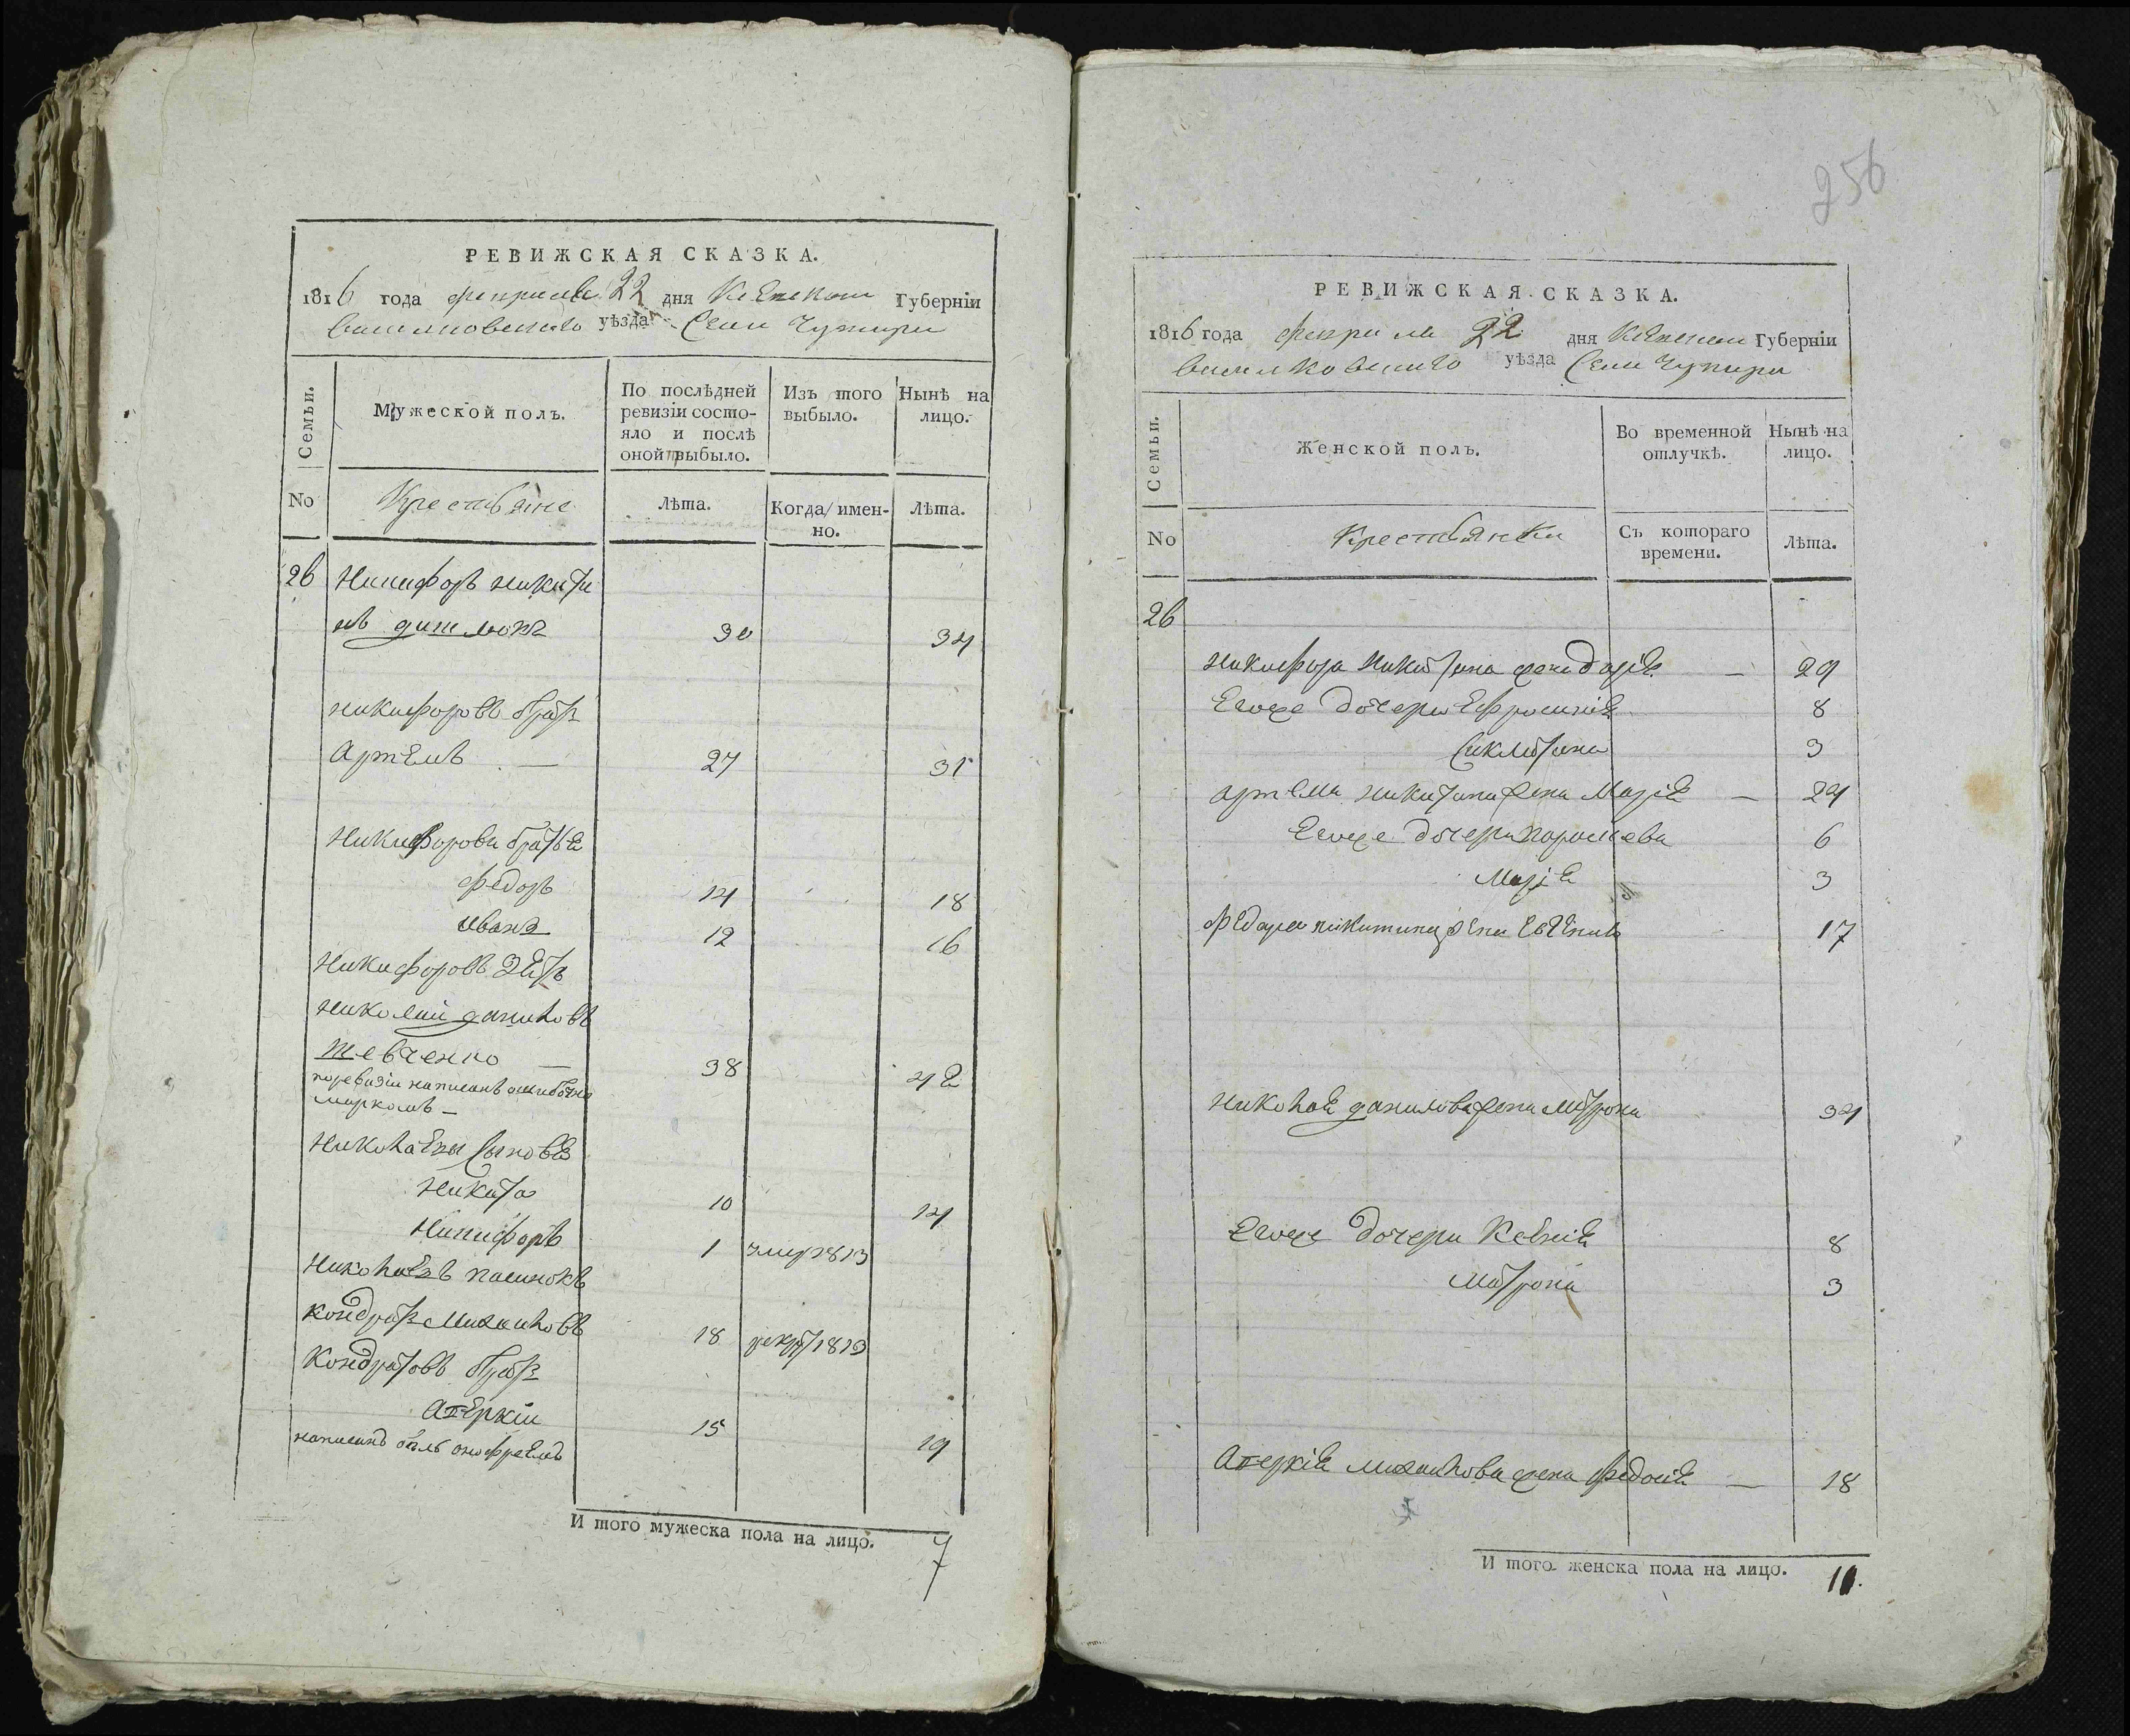 РЕВИЖСКАЯ СКАЗКА.
1816 года февраля 22 дня Кіевской Губерніи
васильковскаго уѣзда Села Чупыри
Семьи.
Мужеской полъ.
По послѣдней ревизіи состояло и послѣ оной выбыло.
Изъ того выбыло.
Нынѣ на лицо.
No
Крестьяне
Лѣта.
Когда имен-но.
Лѣта.
26 Никифоръ никити
нъ 30 34
никифоровъ братъ
Артемъ — 27 31
Никифорови братья
федоръ 14 18
иванъ 12 16
Никифоровъ зять
николай даниловъ
шевченко — 38 42
поревизіи написанъ ошибочно
марком —
Николаевы сыновья
Никита 10 14
Никифоръ 1 умер 1813
Николаевъ пасинокъ
кондратъ Михайловъ 18 рекрут 1813
Кондратовъ братъ
Аверкій 15 19
написанъ былъ онофреемъ
И того мужеска пола на лицо. 7
256
РЕВИЖСКАЯ СКАЗКА.
1816 года февраля 22 дня Кіевской Губерніи
васильковскаго уѣзда Села Чупыри
Семьи.
Женской полъ.
Во временной отлучкѣ.
Нынѣ на лицо.
No
Крестьянки
Съ котораго времени.
Лѣта.
26
никифора Никитина жена дарія — 29
Егоже дочери Ефросинія 8
3
артема никитина жена Марія — 24
Егоже дочери параскева 6
Марія 3
федора никитина жена Евгенія 17
николая данилова жена матрона 34
Егоже дочери Ксенія 8
матрона 3
Аверкія михайлова жена федосія — 18
И того женска пола на лицо. 11.